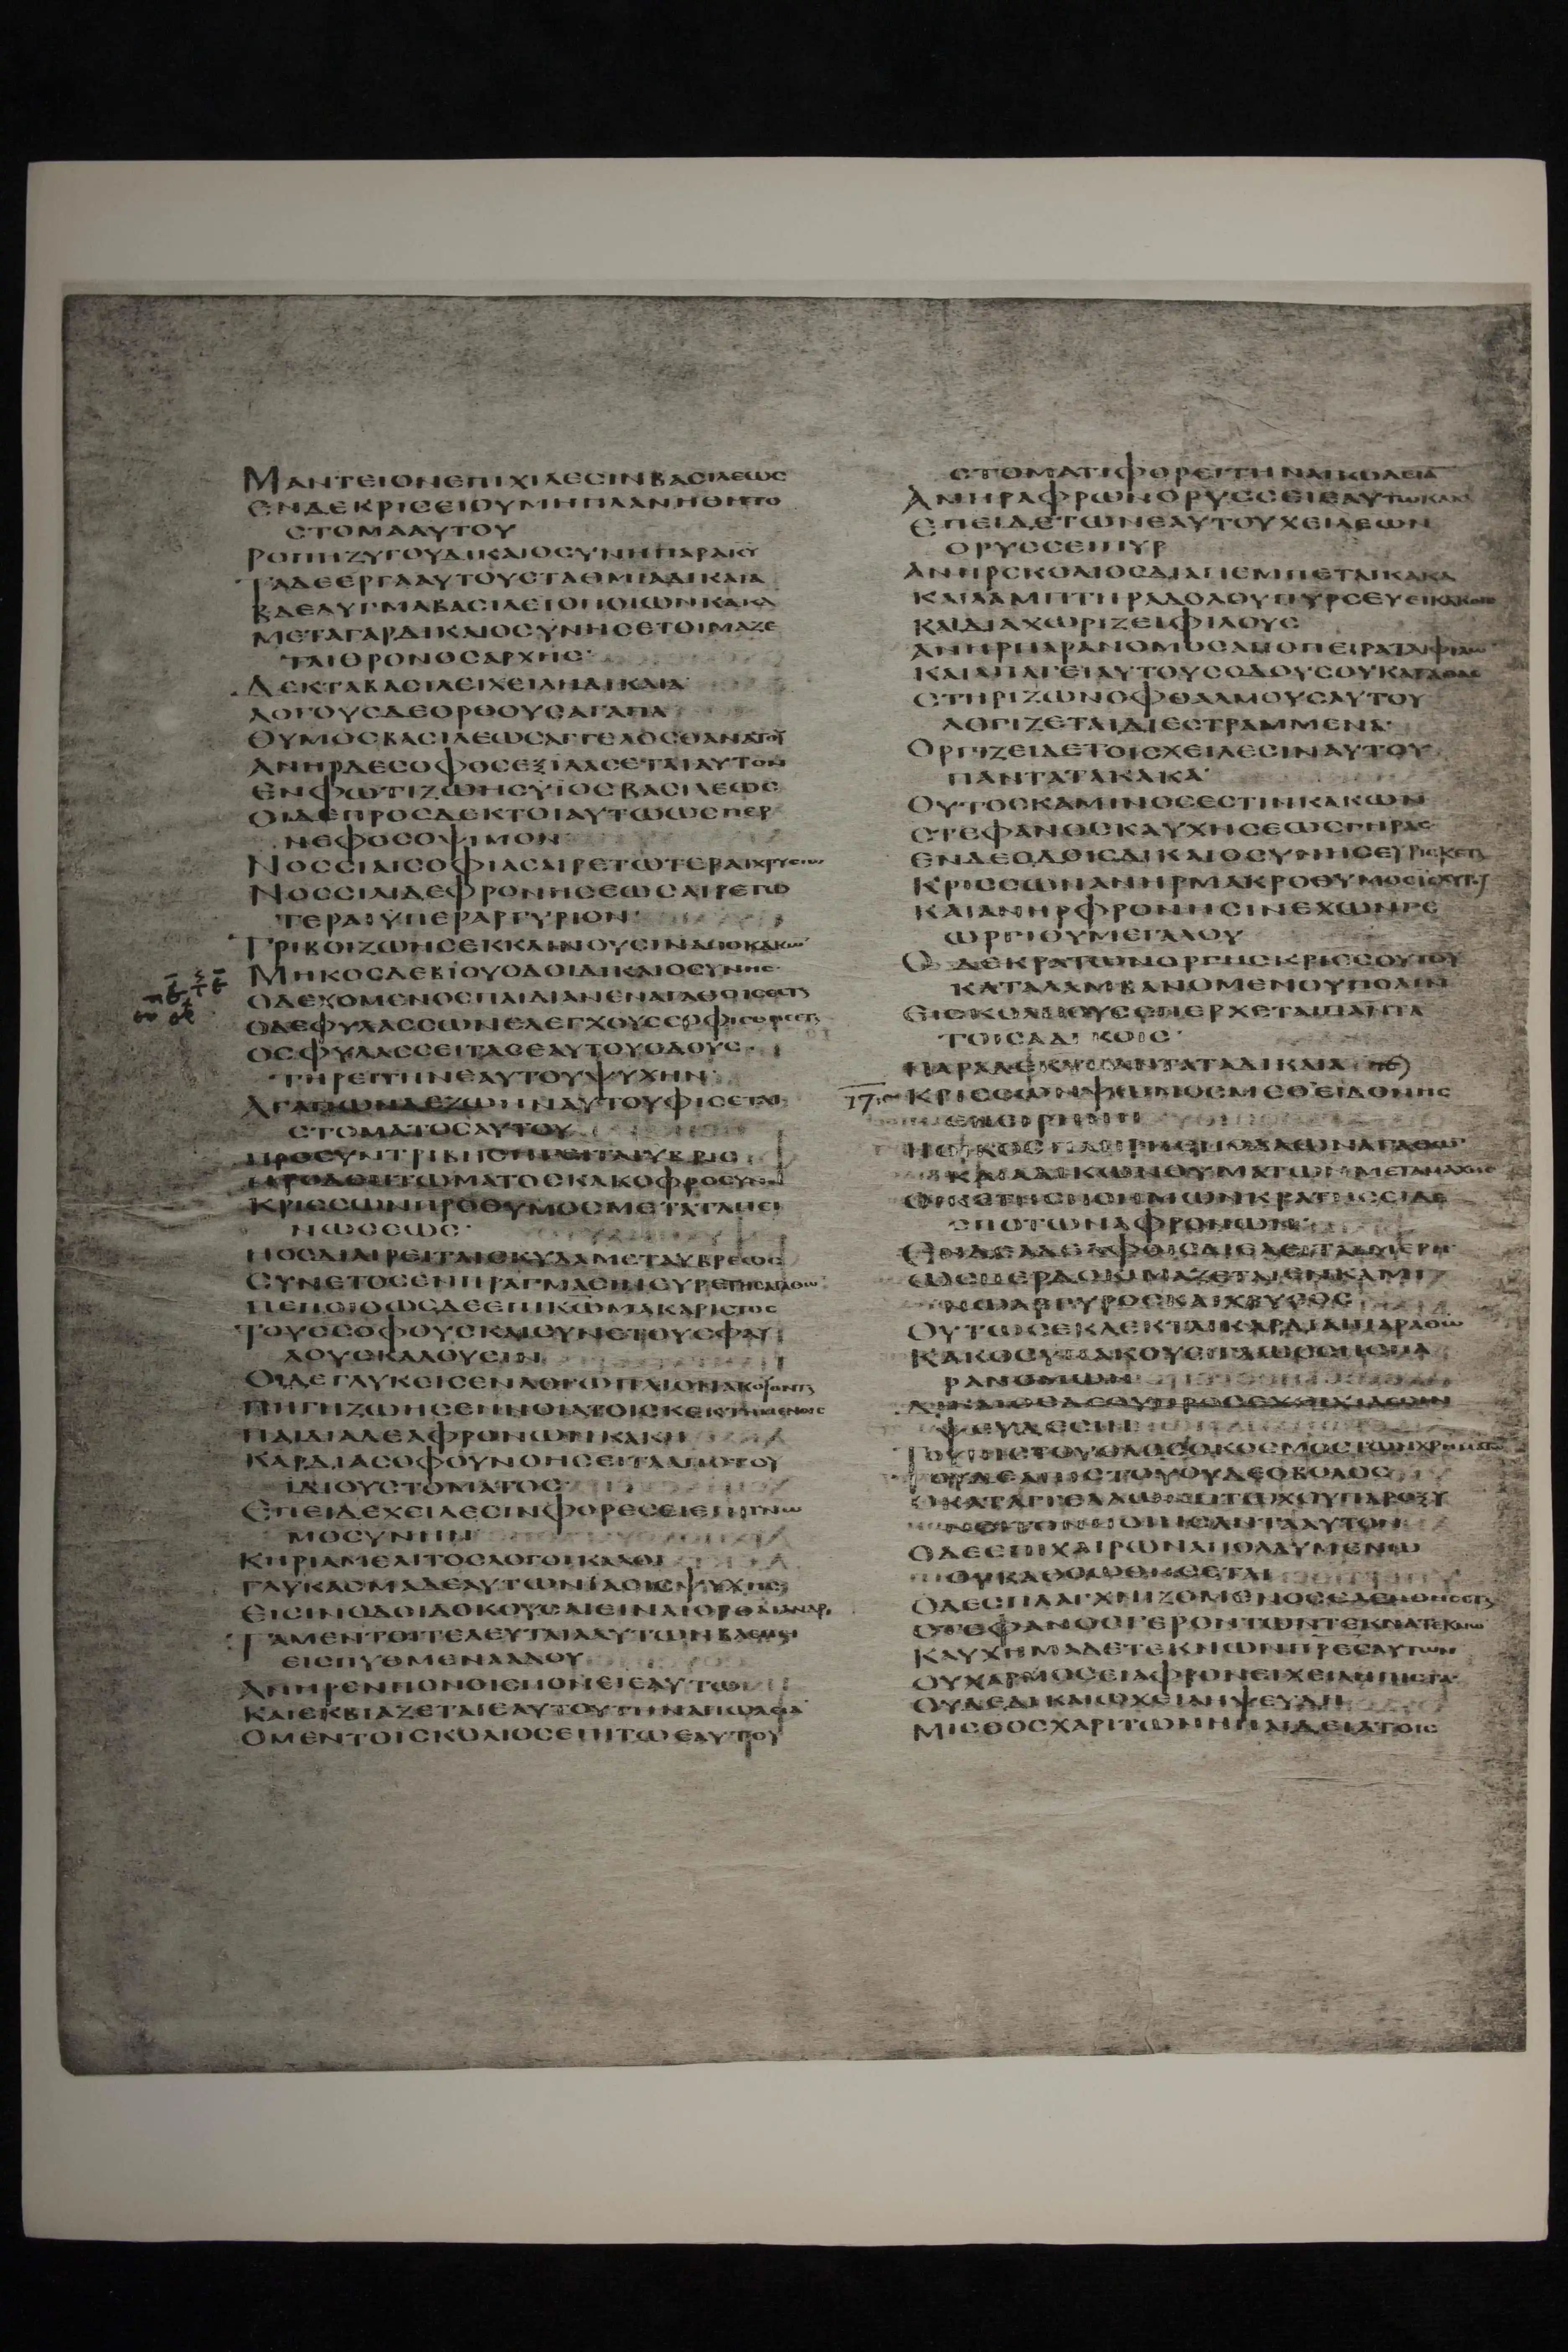 ΜΑΝΤΕΙΟΝΕΠΙΧΙΛΕCΙΝΒΑCΙΛΕΩC
ΕΝΔΕΚΡΙCΕΙΟΥΜΗΠΛΑΝΗΘΗΤΟ
CΤΟΜΑΑΥΤΟΥ
ΡΟΠΗΖΥΓΟΥΔΙΚΑΙΟCΥΝΗΠΑΡΑΚΥ
ΤΑΔΕΕΡΓΑΑΥΤΟΥCΤΑΘΜΙΑΔΙΚΑΙΑ
ΒΔΕΛΥΓΜΑΒΑCΙΛΕΙΟΠΟΙΩΝΚΑΚΑ
ΜΕΤΑΓΑΡΔΙΚΑΙΟCΥΝΗCΕΤΟΙΜΑΖΕ
ΤΑΙΘΡΟΝΟCΑΡΧΗC
ΔΕΚΤΑΒΑCΙΛΕΙΧΕΙΛΗΔΙΚΑΙΑ
ΛΟΓΟΥCΔΕΟΡΘΟΥCΑΓΑΠΑ
ΘΥΜΟCΒΑCΙΛΕΩCΑΓΓΕΛΟCΘΑΝΑΤΟΥ
ΑΝΗΡΔΕCΟΦΟCΕΞΙΛΑCΕΤΑΙΑΥΤΟΝ
ΕΝΦΩΤΙΖΩΗCΥΙΟCΒΑCΙΛΕΩC
ΟΙΔΕΠΡΟCΔΕΚΤΟΙΑΥΤΩΩCΠΕΡ
ΝΕΦΟCΟΨΙΜΟΝ
ΝΟCCΙΑΙCΟΦΙΑCΑΙΡΕΤΩΤΕΡΑΙΧΡΥCΙΟΥ
ΝΟCCΙΑΙΔΕΦΡΟΝΗCΕΩCΑΙΡΕΤΩ
ΤΕΡΑΙΥΠΕΡΑΡΓΥΡΙΟΝ
ΤΡΙΒΟΙΖΩΗCΕΚΚΛΙΝΟΥCΙΝΑΠΟΚΑΚΩΝ
ΜΗΚΟCΔΕΒΙΟΥΟΔΟΙΔΙΚΑΙΟCΥΝΗC
ΟΔΕΧΟΜΕΝΟCΠΑΙΔΙΑΝΕΝΑΓΑΘΟΙCΕCΤΑΙ
ΟΔΕΦΥΛΑCCΩΝΕΛΕΓΧΟΥCCΟΦΙCΘΗCΕΤΑΙ
ΟCΦΥΛΑCCΕΙΤΑCΕΑΥΤΟΥΟΔΟΥC
ΤΗΡΕΙΤΗΝΕΑΥΤΟΥΨΥΧΗΝ
ΑΓΑΠΩΝΔΕΖΩΗΝΑΥΤΟΥΦΙCΕΤΑΙ
CΤΟΜΑΤΟCΑΥΤΟΥ
ΠΡΟCΥΝΤΡΙΒΗCΗΓΕΙΤΑΙΥΒΡΙC
ΠΡΟΔΕΠΤΩΜΑΤΟCΚΑΚΟΦΡΟCΥΝΗ
ΚΡΙCCΩΝΠΡΟΘΥΜΟCΜΕΤΑΤΑΠΕΙ
ΝΩCΕΩC
ΗΟCΔΙΑΙΡΕΙΤΑΙCΚΥΛΑΜΕΤΑΥΒΡΕΩC
CΥΝΕΤΟCΕΝΠΡΑΓΜΑCΙΝΕΥΡΕΤΗCΑΓΑΘΩΝ
ΠΕΠΟΙΘΩCΔΕΕΠΙΚΩΜΑΚΑΡΙCΤΟC
ΤΟΥCCΟΦΟΥCΚΑΙCΥΝΕΤΟΥCΦΑΥ
ΛΟΥCΚΑΛΟΥCΙΝ
ΟΙΔΕΓΛΥΚΕΙCΕΝΛΟΓΩΠΛΙΟΝΑΚΟΥΟΝΤΑΙ
ΠΗΓΗΖΩΗCΕΝΝΟΙΑΤΟΙCΚΕΚΤΗΜΕΝΟΙC
ΠΑΙΔΙΑΔΕΑΦΡΟΝΩΝΚΑΚΗ
ΚΑΡΔΙΑCΟΦΟΥΝΟΗCΕΙΤΑΑΠΟΤΟΥ
ΙΔΙΟΥCΤΟΜΑΤΟC
ΕΠΕΙΔΕΧΕΙΛΕCΙΝΦΟΡΕCΕΙΕΠΙΓΝΩ
ΜΟCΥΝΗΝ
ΚΗΡΙΑΜΕΛΙΤΟCΛΟΓΟΙΚΑΛΟΙ
ΓΛΥΚΑCΜΑΔΕΑΥΤΩΝΙΑCΙCΨΥΧΗC
ΕΙCΙΝΟΔΟΙΔΟΚΟΥCΑΙΕΙΝΑΙΟΡΘΑΙΑΝΔΡΙ
ΤΑΜΕΝΤΟΙΤΕΛΕΥΤΑΙΑΑΥΤΩΝΒΛΕΠΕΙ
ΕΙCΠΥΘΜΕΝΑΑΔΟΥ
ΑΝΗΡΕΝΠΟΝΟΙCΠΟΝΕΙΕΑΥΤΩ
ΚΑΙΕΚΒΙΑΖΕΤΑΙΕΑΥΤΟΥΤΗΝΑΠΩΛΕΙΑ
ΟΜΕΝΤΟΙCΚΟΛΙΟCΕΠΙΤΩΕΑΥΤΟΥ
CΤΟΜΑΤΙΦΟΡΕΙΤΗΝΑΠΩΛΕΙΑ
ΑΝΗΡΑΦΡΩΝΟΡΥCCΕΙΕΑΥΤΩΚΑΚΑ
ΕΠΕΙΔΕΤΩΝΕΑΥΤΟΥΧΕΙΛΕΩΝ
ΟΡΥCCΕΙΠΥΡ
ΑΝΗΡCΚΟΛΙΟCΔΙΑΠΕΜΠΕΤΑΙΚΑΚΑ
ΚΑΙΛΑΜΠΤΗΡΑΔΟΛΟΥΠΥΡCΕΥΕΙΚΑΚΟΙC
ΚΑΙΔΙΑΧΩΡΙΖΕΙΦΙΛΟΥC
ΑΝΗΡΠΑΡΑΝΟΜΟCΑΠΟΠΕΙΡΑΤΑΙΦΙΛΩΝ
ΚΑΙΑΠΑΓΕΙΑΥΤΟΥCΟΔΟΥCΟΥΚΑΓΑΘΑC
CΤΗΡΙΖΩΝΟΦΘΑΛΜΟΥCΑΥΤΟΥ
ΛΟΓΙΖΕΤΑΙΔΙΕCΤΡΑΜΜΕΝΑ
ΟΡΓΙΖΕΙΔΕΤΟΙCΧΕΙΛΕCΙΝΑΥΤΟΥ
ΠΑΝΤΑΤΑΚΑΚΑ
ΟΥΤΟCΚΑΜΙΝΟCΕCΤΙΝΚΑΚΩΝ
CΤΕΦΑΝΟCΚΑΥΧΗCΕΩCΓΗΡΑC
ΕΝΔΕΟΔΟΙCΔΙΚΑΙΟCΥΝΗCΕΥΡΙCΚΕΤΑΙ
ΚΡΙCCΩΝΑΝΗΡΜΑΚΡΟΘΥΜΟCΙCΧΥΡΟΥ
ΚΑΙΑΝΗΡΦΡΟΝΗCΙΝΕΧΩΝΓΕ
ΩΡΓΙΟΥΜΕΓΑΛΟΥ
ΟΔΕΚΡΑΤΩΝΟΡΓΗCΚΡΙCCΟΥΤΟΥ
ΚΑΤΑΛΑΜΒΑΝΟΜΕΝΟΥΠΟΛΙΝ
ΕΙCΚΟΛΠΟΥCΕΠΕΡΧΕΤΑΙΠΑΝΤΑ
ΤΟΙCΑΔΙΚΟΙC
ΠΑΡΑΔΕΚΥΠΑΝΤΑΤΑΔΙΚΑΙΑ
ΚΡΙCCΩΝΨΩΜΟCΜΕΘΕΙΔΟΝΗC
ΕΝΕΙΡΗΝΗ
ΗΟΙΚΟCΠΛΗΡΗCΠΟΛΛΩΝΑΓΑΘΩΝ
ΚΑΙΑΔΙΚΩΝΘΥΜΑΤΩΝΜΕΤΑΜΑΧΗC
ΟΙΚΕΤΗCΝΟΗΜΩΝΚΡΑΤΗCΕΙΔΕ
CΠΟΤΩΝΑΦΡΟΝΩΝ
ΕΝΔΕΑΔΕΛΦΟΙCΔΙΕΛΕΙΤΑΙΜΕΡΗ
ΩCΠΕΡΔΟΚΙΜΑΖΕΤΑΙΕΝΚΑΜΙ
ΝΩΑΡΓΥΡΟCΚΑΙΧΡΥCΟC
ΟΥΤΩCΕΚΛΕΚΤΑΙΚΑΡΔΙΑΙΠΑΡΑΘΩ
ΚΑΚΟCΥΠΑΚΟΥΕΙΓΛΩCCΗCΠΑ
ΡΑΝΟΜΩΝ
ΔΙΚΑΙΟCΔΕΟΥΠΡΟCΕΧΕΙΧΙΛΕCΙΝ
ΨΕΥΔΕCΙΝ
ΤΟΥΠΙCΤΟΥΟΛΟCΟΚΟCΜΟCΤΩΝΧΡΗΜΑΤΩΝ
ΤΟΥΔΕΑΠΙCΤΟΥΟΥΔΕΟΒΟΛΟC
ΟΚΑΤΑΓΕΛΩΝΠΤΩΧΟΥΠΑΡΟΞΥ
ΝΕΙΤΟΝΠΟΙΗCΑΝΤΑΑΥΤΟΝ
ΟΔΕΕΠΙΧΑΙΡΩΝΑΠΟΛΛΥΜΕΝΩ
ΟΥΚΑΘΟΩΘΗCΕΤΑΙ
ΟΔΕCΠΛΑΓΧΝΙΖΟΜΕΝΟCΕΛΕΗΘΗCΕΤΑΙ
CΤΕΦΑΝΟCΓΕΡΟΝΤΩΝΤΕΚΝΑΤΕΚΝΩ
ΚΑΥΧΗΜΑΔΕΤΕΚΝΩΝΠΑΤΕΡΕCΑΥΤΩΝ
ΟΥΧΑΡΜΟCΕΙΑΦΡΟΝΕΙΧΕΙΛΗΠΙCΤΑ
ΟΥΔΕΔΙΚΑΙΩΧΕΙΛΗΨΕΥΔΗ
ΜΙCΘΟCΧΑΡΙΤΩΝΗΠΑΙΔΕΙΑΤΟΙC